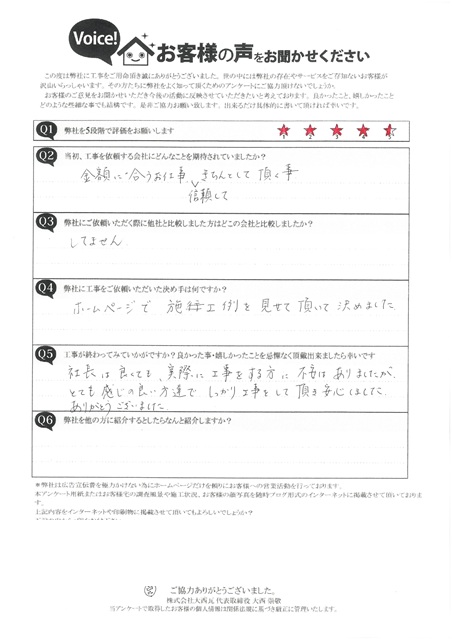 Voice!
お客様の声をお聞かせください
この度は弊社に工事をご用命頂き誠にありがとうございました。世の中には弊社の存在やサービスをご存知ないお客様が
沢山いらっしゃいます。その方たちに弊社をよく知って頂くためのアンケートにご協力頂けないでしょうか。
お客様のご意見をお聞かせいただき今後の活動に反映させていただきたいと考えております。良かったこと、嬉しかったこと
どのような些細な事でも結構です。是非ご協力お願い致します。出来るだけ具体的に書いて頂ければ幸いです。
Q1 弊社を5段階で評価をお願いします
1 2 3 4 5
Q2 当初、工事を依頼する会社にどんなことを期待されていましたか？
金額に合うお仕事 きちんとして頂く事
信頼して
Q3 弊社にご依頼いただく際に他社と比較しました方はどこの会社と比較しましたか？
してません
Q4 弊社に工事をご依頼いただいた決め手は何ですか？
ホームページで 施工例を見せて頂いて決めました
Q5 工事が終わってみていかがですか？良かった事・嬉しかったことを忌憚なく頂戴出来ましたら幸いです
社長は良くても、実際に工事をする方に不安はありましたが、
とても感じの良い方達で しっかり工事をして頂き安心しました
ありがとうございました
Q6 弊社を他の方に紹介するとしたらなんと紹介しますか？
＊弊社は広告宣伝費を極力かけない為にホームページだけを頼りにお客様への営業活動を行っております。
本アンケート用紙またはお客様宅の調査風景や施工状況、お客様の顔写真を随時ブログ形式のインターネットに掲載させて頂いておりま
す。
上記内容をインターネットや印刷物に掲載させて頂いてもよろしいでしょうか？
ご協力ありがとうございました。
株式会社大西瓦 代表取締役 大西 崇敬
当アンケートで取得したお客様の個人情報は関係法規に基づき厳正に管理いたします。